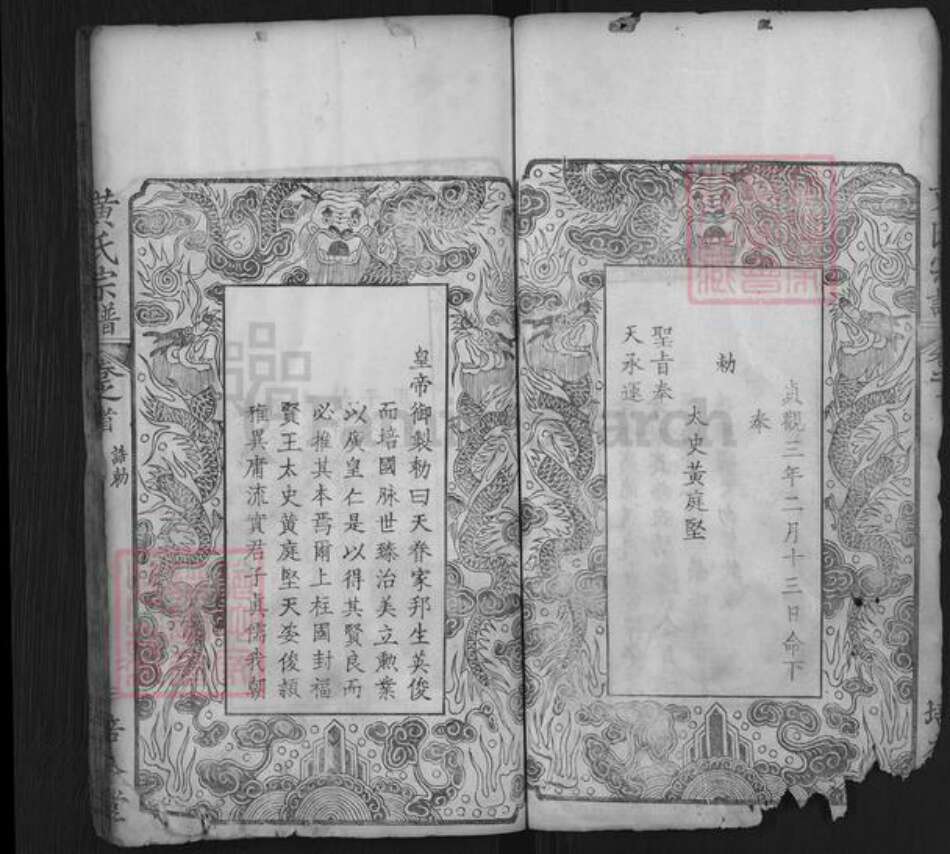 貞觀三年二月十三日命下
奉
勅
太史黃庭堅
聖旨奉
天承運
皇帝御製勅曰天眷家邦生英俊
而培國脉世臻治美立勲業
以廣皇仁是以得其賢良而
必推其本焉爾上柱國封福
賢王太史黄庭堅天姿俊頴
雅異庸流實君子真儒我朝
黄氏宗譜
卷之首
誥勅